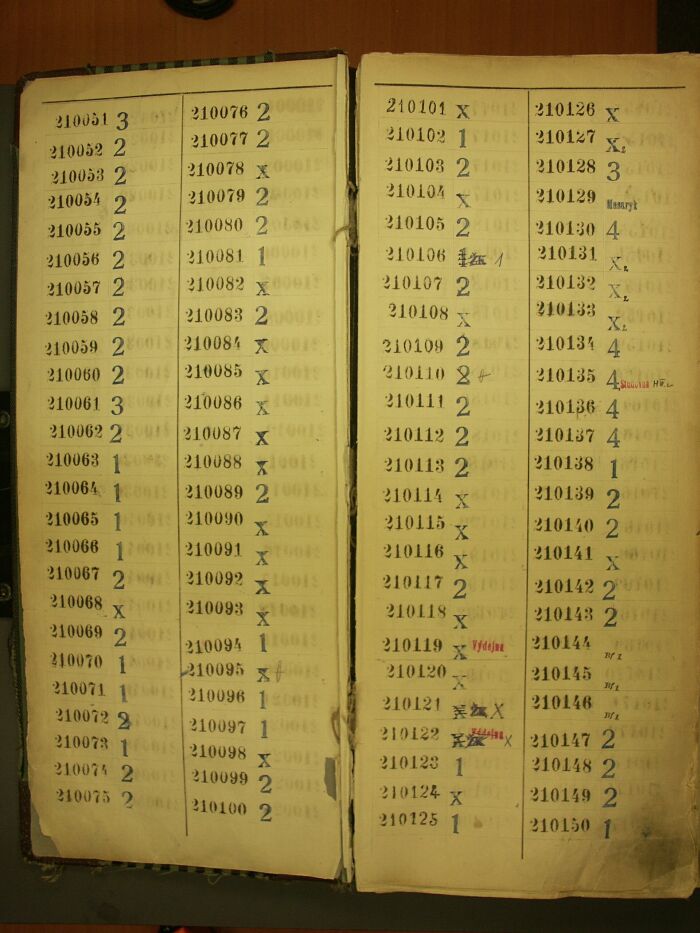 210051 3
210052 2
210053 2
210054 2
210055 2
210056 2
210057 2
210058 2
210059 2
210060 2
210061 3
210062 2
210063 1
210064 1
210065 1
210066 1
210067 2
210068 x
210069 2
210070 1
210071 1
210072 2
210073 1
210074 2
210075 2
210076 2
210077 2
210078 x
210079 2
210080 2
210081 1
210082 x
210083 2
210084 x
210085 x
210086 x
210087 x
210088 x
210089 2
210090 x
210091 x
210092 x
210093 x
210094 1
210095 x
210096 1
210097 1
210098 x
210099 2
210100 2
210101 x
210102 1
210103 2
210104 x
210105 2
210106 1
210107 2
210108 x
210109 2
210110 2
210111 2
210112 2
210113 2
210114 x
210115 x
210116 x
210117 2
210118 x
210119 x Výdejna
210120 x
210121 x X
210122 x Výdejna x
210123 1
210124 x
210125 1
210126 x
210127 x2
210128 3
210129 Masaryk
210130 4
210131 x2
210132 x2
210133 x2
210134 4
210135 4
210136 4
210137 4
210138 1
210139 2
210140 2
210141 x
210142 2
210143 2
210144
210145
210146
210147 2
210148 2
210149 2
210150 1